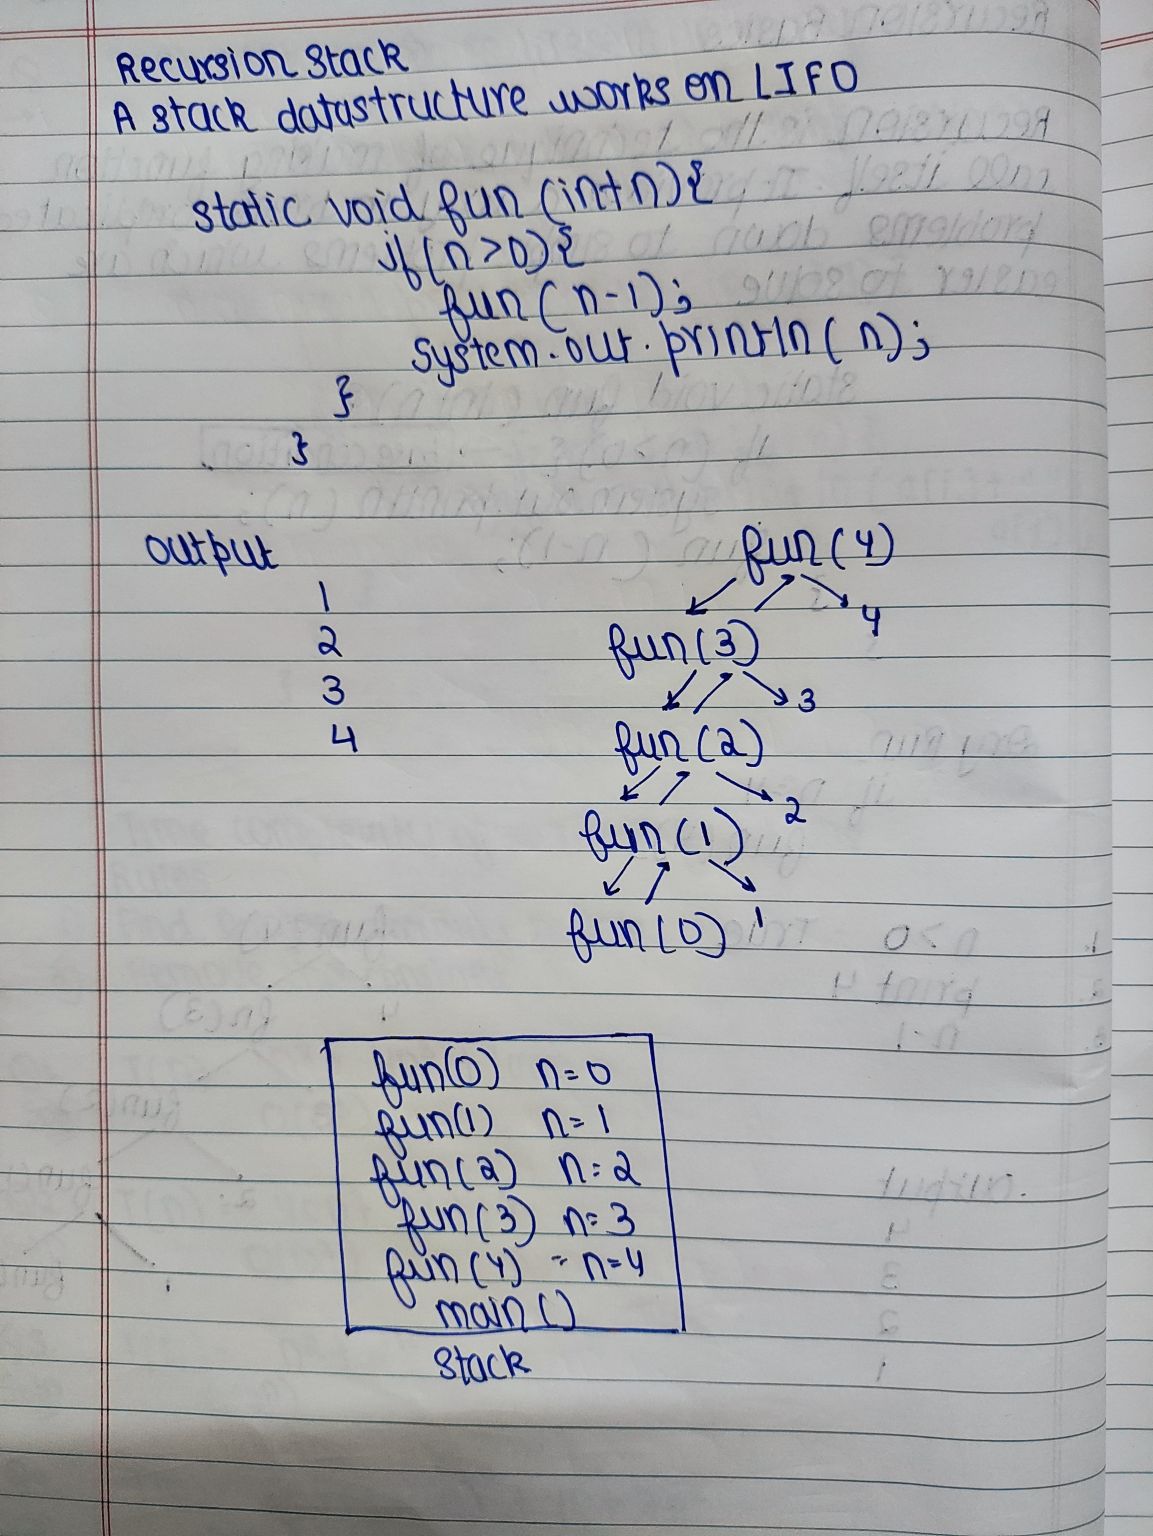 Recursion Stack
A stack datastructure works on LIFO
static void fun (int n) {
if (n > 0) {
fun (n-1);
system.out.println(n);
}
}
output
1
2
3
4
fun(4)
4
fun(3)
3
fun(2)
2
fun(1)
1
fun(0)
fun(0) n=0
fun(1) n=1
fun(2) n=2
fun(3) n=3
fun(4) = n=4
main()
Stack